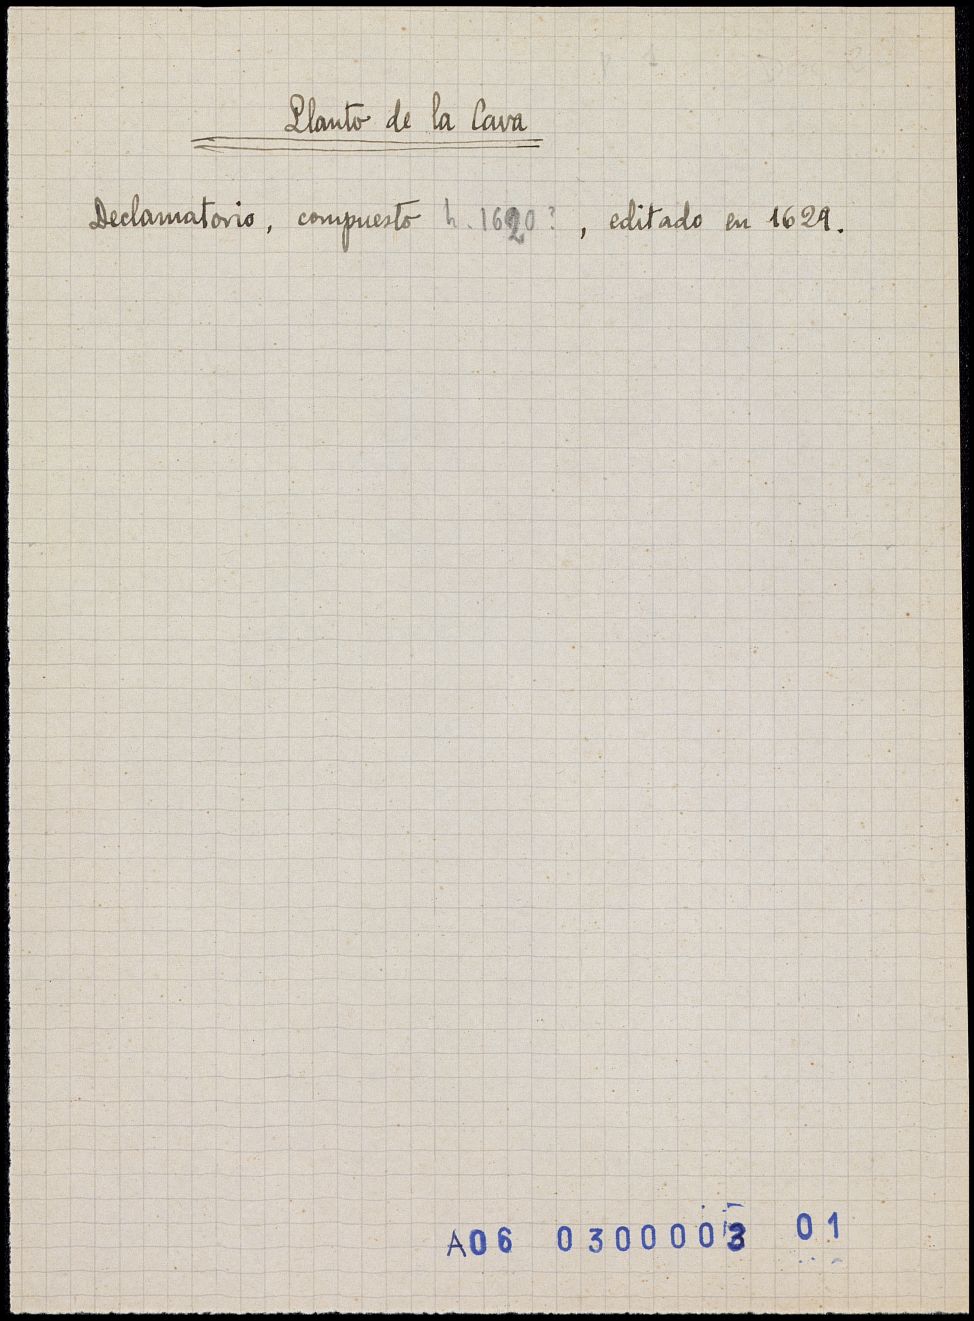 Planto de la Cava
Declamatorio, compuesto h. 1620?, editado en 1629.
A06 0300003 01